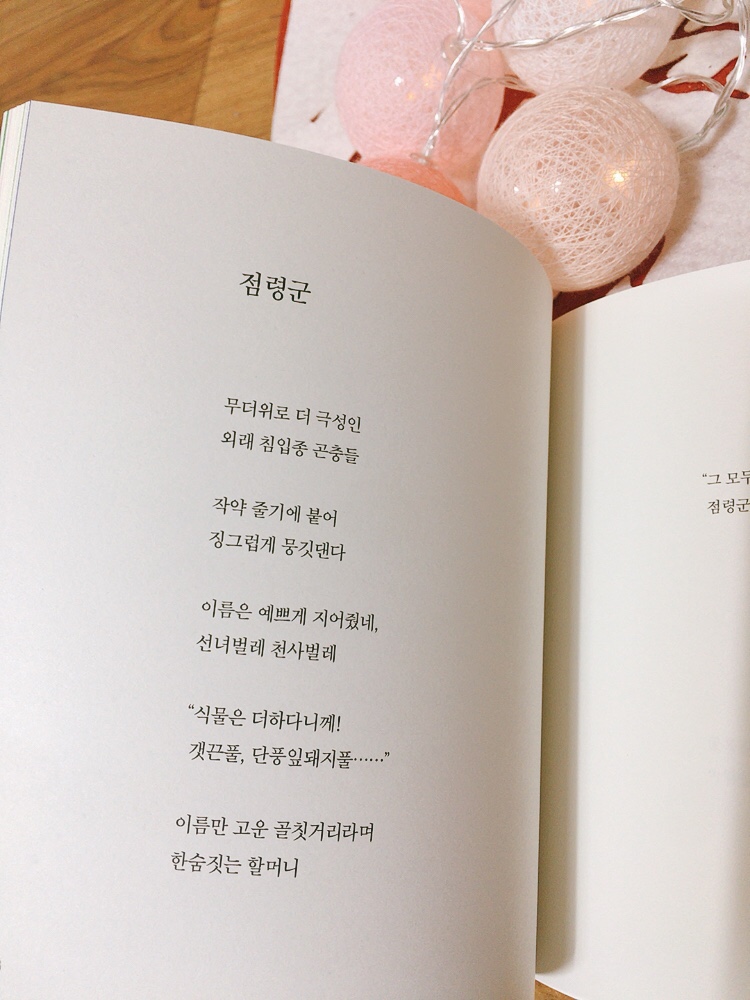 점령군
무더위로 더 극성인
외래 침입종 곤충들
작약 줄기에 붙어
징그럽게 뭉깃댄다
이름은 예쁘게 지어줬네,
선녀벌레 천사벌레
“식물은 더하다니께!
갯끈풀, 단풍잎돼지풀……”
이름만 고운 골칫거리라며
한숨짓는 할머니
“그 모두
점령군